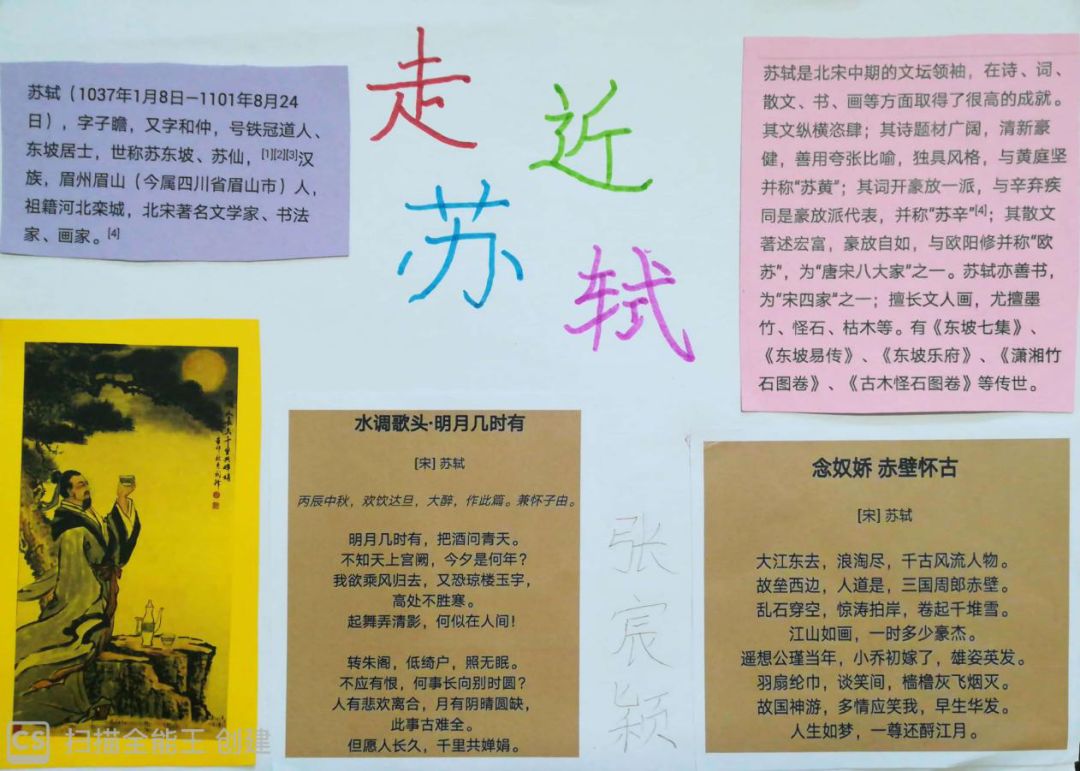 走近
苏轼
苏轼（1037年1月8日—1101年8月24
日），字子瞻，又字和仲，号铁冠道人、
东坡居士，世称苏东坡、苏仙，[1][2][3]汉
族，眉州眉山（今属四川省眉山市）人，
祖籍河北栾城，北宋著名文学家、书法
家、画家。[4]
苏轼是北宋中期的文坛领袖，在诗、词、
散文、书、画等方面取得了很高的成就。
其文纵横恣肆；其诗题材广阔，清新豪
健，善用夸张比喻，独具风格，与黄庭坚
并称“苏黄”；其词开豪放一派，与辛弃疾
同是豪放派代表，并称“苏辛”[4]；其散文
著述宏富，豪放自如，与欧阳修并称“欧
苏”，为“唐宋八大家”之一。苏轼亦善书，
为“宋四家”之一；擅长文人画，尤擅墨
竹、怪石、枯木等。有《东坡七集》、
《东坡易传》、《东坡乐府》、《潇湘竹
石图卷》、《古木怪石图卷》等传世。
水调歌头·明月几时有
[宋] 苏轼
丙辰中秋，欢饮达旦，大醉，作此篇。兼怀子由。
明月几时有，把酒问青天。
不知天上宫阙，今夕是何年？
我欲乘风归去，又恐琼楼玉宇，
高处不胜寒。
起舞弄清影，何似在人间！
转朱阁，低绮户，照无眠。
不应有恨，何事长向别时圆？
人有悲欢离合，月有阴晴圆缺，
此事古难全。
但愿人长久，千里共婵娟。
张宸颖
念奴娇 赤壁怀古
[宋] 苏轼
大江东去，浪淘尽，千古风流人物。
故垒西边，人道是，三国周郎赤壁。
乱石穿空，惊涛拍岸，卷起千堆雪。
江山如画，一时多少豪杰。
遥想公瑾当年，小乔初嫁了，雄姿英发。
羽扇纶巾，谈笑间，樯橹灰飞烟灭。
故国神游，多情应笑我，早生华发。
人生如梦，一尊还酹江月。
CS 扫描全能王 创建